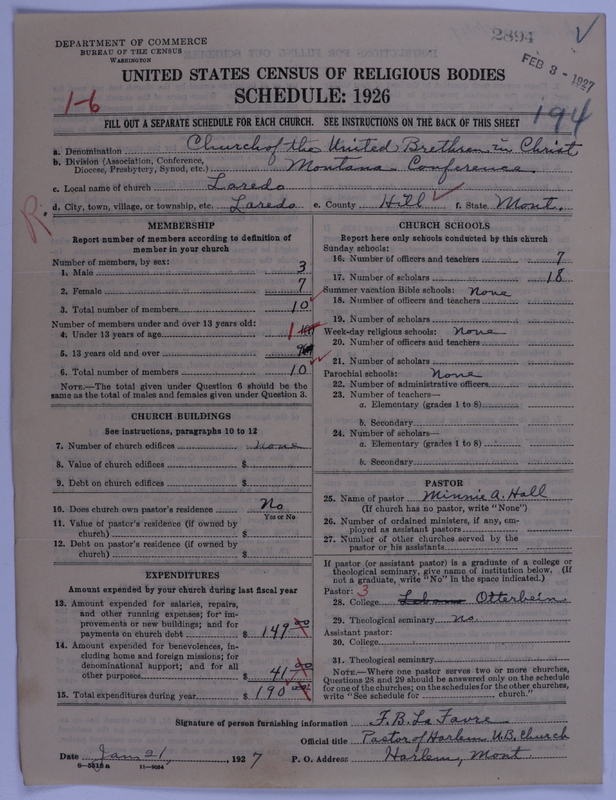 DEPARTMENT OF COMMERCE
BUREAU OF THE CENSUS
WASHINGTON
2894
FEB 3 - 1927
UNITED STATES CENSUS OF RELIGIOUS BODIES
SCHEDULE: 1926
1-6
194
FILL OUT A SEPARATE SCHEDULE FOR EACH CHURCH. SEE INSTRUCTIONS ON THE BACK OF THIS SHEET
a. Denomination Church of the United Brethren in Christ
b. Division (Association, Conference, Diocese, Presbytery, Synod, etc.) Montana Conference
c. Local name of church Laredo
d. City, town, village, or township, etc. Laredo e. County Hill f. State Mont.
R.
MEMBERSHIP
Report number of members according to definition of
member in your church
Number of members, by sex:
1. Male 3
2. Female 7
3. Total number of members 10
Number of members under and over 13 years old:
4. Under 13 years of age 1
5. 13 years old and over
6. Total number of members 10
NOTE.—The total given under Question 6 should be the
same as the total of males and females given under Question 3.
CHURCH BUILDINGS
See instructions, paragraphs 10 to 12
7. Number of church edifices none
8. Value of church edifices $
9. Debt on church edifices $
10. Does church own pastor's residence No
Yes or No
11. Value of pastor's residence (if owned by
church) $
12. Debt on pastor's residence (if owned by
church) $
EXPENDITURES
Amount expended by your church during last fiscal year
13. Amount expended for salaries, repairs,
and other running expenses; for improvements or new buildings; and for
payments on church debt $ 149
14. Amount expended for benevolences, including home and foreign missions; for
denominational support; and for all
other purposes $ 41
15. Total expenditures during year $ 190
CHURCH SCHOOLS
Report here only schools conducted by this church
Sunday schools:
16. Number of officers and teachers 7
17. Number of scholars 18
Summer vacation Bible schools: None
18. Number of officers and teachers
19. Number of scholars
Week-day religious schools: None
20. Number of officers and teachers
21. Number of scholars
Parochial schools: None
22. Number of administrative officers
23. Number of teachers—
a. Elementary (grades 1 to 8)
b. Secondary
24. Number of scholars—
a. Elementary (grades 1 to 8)
b. Secondary
PASTOR
25. Name of pastor Minnie A. Hall
(If church has no pastor, write "None")
26. Number of ordained ministers, if any, employed as assistant pastors
27. Number of other churches served by the
pastor or his assistants
If pastor (or assistant pastor) is a graduate of a college or
theological seminary, give name of institution below. (If
not a graduate, write "No" in the space indicated.)
Pastor: 3
28. College Otterbein
29. Theological seminary No
Assistant pastor:
30. College
31. Theological seminary
NOTE.—Where one pastor serves two or more churches,
Questions 28 and 29 should be answered only on the schedule
for one of the churches; on the schedules for the other churches,
write "See schedule for church."
Signature of person furnishing information F. B. La Favre
Official title Pastor of Harlem U.B. Church
Date Jan 21, 1927 P. O. Address Harlem, Mont
8-5515a 11-9024